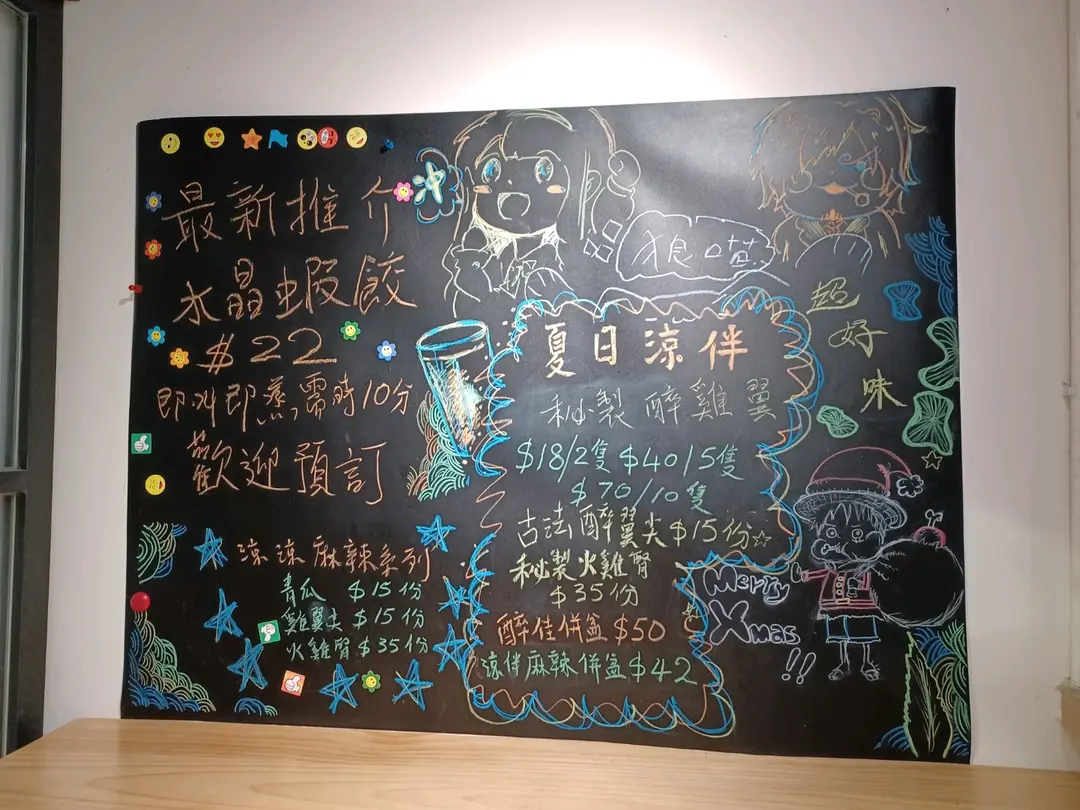 最新推介
水晶蝦餃
$22
即叫即蒸,需時10分
歡迎預訂
涼涼麻辣系列
青瓜 $15份
雞翼尖 $15份
火雞腎 $35份
夏日涼伴
秘製醉雞翼
$18/2隻 $40/5隻
$70/10隻
古法醉翼尖$15份
秘製火雞腎
$35份
醉佳併盆$50
涼伴麻辣併盆$42
超好味
Merry
Xmas
!!